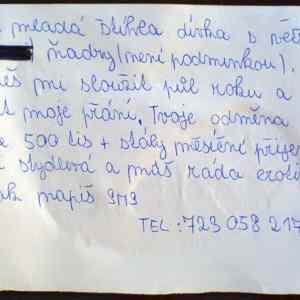 mladá štíhlá dívka s vět
ňadry (není podmínkou).
eš mi sloužit půl roku a
moje přání. Tvoje odměna
500 tis + stálý měsíční příjem
stydlivá a máš ráda eroti
napiš SMS
TEL: 723 058 217